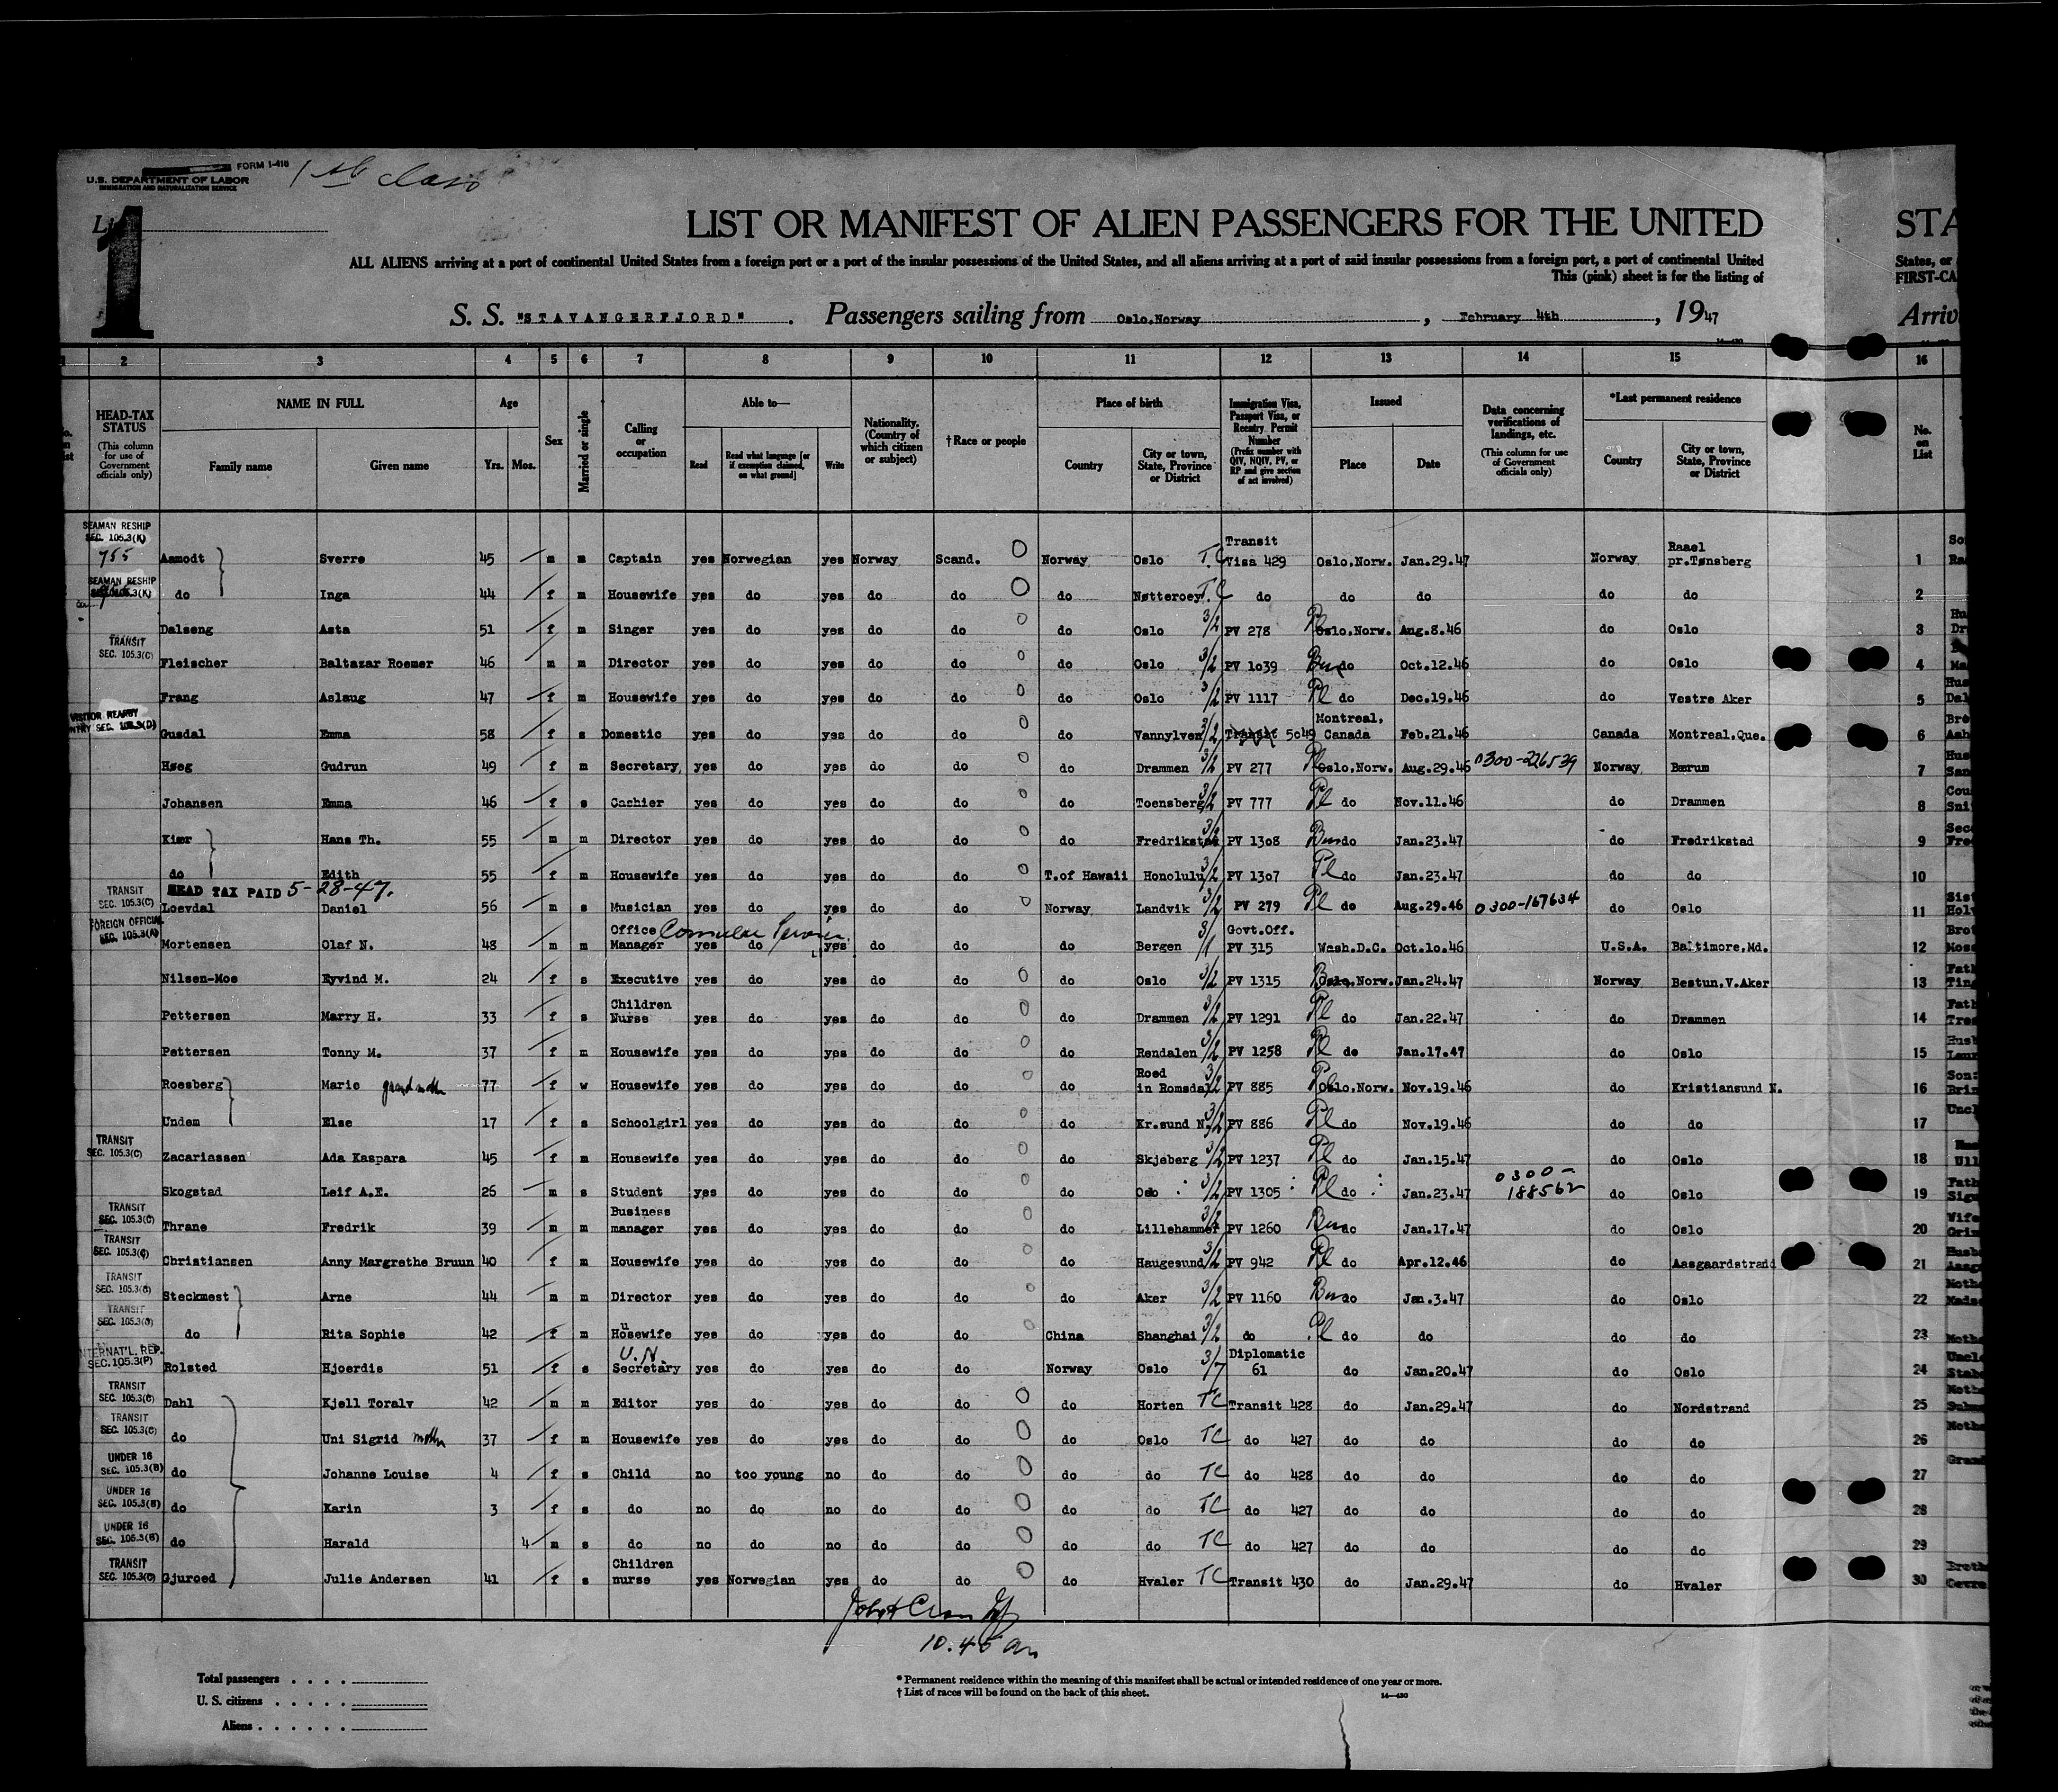 FORM I-416
1st class
U.S. DEPARTMENT OF LABOR
IMMIGRATION AND NATURALIZATION SERVICE
1
LIST OR MANIFEST OF ALIEN PASSENGERS FOR THE UNITED STA
ALL ALIENS arriving at a port of continental United States from a foreign port or a port of the insular possessions of the United States, and all aliens arriving at a port of said insular possessions from a foreign port, a port of continental United States, or
This (pink) sheet is for the listing of FIRST-CA
S. S. "STAVANGERFJORD" . Passengers sailing from Oslo.Norway , February 4th , 1947 Arriv
2 3 4 5 6 7 8 9 10 11 12 13 14 15 16
HEAD-TAX STATUS (This column for use of Government officials only)
NAME IN FULL Family name Given name
Age Yrs. Mos.
Sex
Married or single
Calling or occupation
Able to— Read Read what language [or if exemption claimed, on what ground] Write
Nationality. (Country of which citizen or subject)
†Race or people
Place of birth Country City or town, State, Province or District
Immigration Visa, Passport Visa, or Reentry Permit Number (Prefix number with QIV, NQIV, PV, or RP and give section of act involved)
Issued Place Date
Data concerning verifications of landings, etc. (This column for use of Government officials only)
*Last permanent residence Country City or town, State, Province or District
No. on List
SEAMAN RESHIP SEC. 105.3(K)
755 Aamodt Sverre 45 m m Captain yes Norwegian yes Norway Scand. Norway Oslo T.C Transit Visa 429 Oslo.Norw. Jan.29.47 Norway Raael pr.Tønsberg 1
SEAMAN RESHIP SEC. 105.3(K)
do Inga 44 f m Housewife yes do yes do do do Nøtteroey T.C do do do do do 2
Dalseng Asta 51 f m Singer yes do yes do do do Oslo 3/2 PV 278 Pl Oslo.Norw. Aug.8.46 do Oslo 3
TRANSIT SEC. 105.3(C)
Fleischer Baltazar Roemer 46 m m Director yes do yes do do do Oslo 3/2 PV 1039 Bus do Oct.12.46 do Oslo 4
Frang Aslaug 47 f m Housewife yes do yes do do do Oslo 3/2 PV 1117 Pl do Dec.19.46 do Vestre Aker 5
VISITOR NEARBY NTRY SEC. 105.3(D)
Gusdal Emma 58 f s Domestic yes do yes do do do Vannylven 3/2 Transit 5049 Montreal, Canada Feb.21.46 Canada Montreal.Que. 6
Høeg Gudrun 49 f m Secretary, yes do yes do do do Drammen 3/2 PV 277 Pl Oslo.Norw. Aug.29.46 0300-226539 Norway Bærum 7
Johansen Emma 46 f s Cachier yes do yes do do do Toensberg 3/2 PV 777 Pl do Nov.11.46 do Drammen 8
Kiær Hans Th. 55 m m Director yes do yes do do do Fredrikstad 3/2 PV 1308 Bus do Jan.23.47 do Fredrikstad 9
do Edith 55 f m Housewife yes do yes do do T.of Hawaii Honolulu 3/2 PV 1307 Pl do Jan.23.47 do do 10
HEAD TAX PAID 5-28-47.
TRANSIT SEC. 105.3(C)
Loevdal Daniel 56 m s Musician yes do yes do do Norway Landvik 3/2 PV 279 Pl do Aug.29.46 0300-167634 do Oslo 11
FOREIGN OFFICIAL SEC. 105.3(A)
Mortensen Olaf N. 48 m m Office Manager Consular Service yes do yes do do do Bergen 3/1 Govt.Off. PV 315 Wash.D.C. Oct.10.46 U.S.A. Baltimore.Md. 12
Nilsen-Moe Eyvind M. 24 f s Executive yes do yes do do do Oslo 3/2 PV 1315 Oslo.Norw. Jan.24.47 Norway Bestun.V.Aker 13
Pettersen Marry H. 33 f s Children Nurse yes do yes do do do Drammen 3/2 PV 1291 Pl do Jan.22.47 do Drammen 14
Pettersen Tonny M. 37 f m Housewife yes do yes do do do Rendalen 3/2 PV 1258 Pl do Jan.17.47 do Oslo 15
Roesberg Marie grandmother 77 f w Housewife yes do yes do do do Roed in Romsdal 3/2 PV 885 Oslo.Norw. Nov.19.46 do Kristiansund N. 16
Undem Else 17 f s Schoolgirl yes do yes do do do Kr.sund N. 3/2 PV 886 Pl do Nov.19.46 do do 17
TRANSIT SEC. 105.3(C)
Zacariassen Ada Kaspara 45 f m Housewife yes do yes do do do Skjeberg 3/2 PV 1237 Pl do Jan.15.47 do Oslo 18
Skogstad Leif A.E. 26 m s Student yes do yes do do do Oslo 3/2 PV 1305 Pl do Jan.23.47 0300-188562 do Oslo 19
TRANSIT SEC. 105.3(C)
Thrane Fredrik 39 m m Business manager yes do yes do do do Lillehammer 3/2 PV 1260 Bus do Jan.17.47 do Oslo 20
TRANSIT SEC. 105.3(C)
Christiansen Anny Margrethe Bruun 40 f m Housewife yes do yes do do do Haugesund 3/2 PV 942 Pl do Apr.12.46 do Aasgaardstrand 21
TRANSIT SEC. 105.3(C)
Steckmest Arne 44 m m Director yes do yes do do do Aker 3/2 PV 1160 Bus do Jan.3.47 do Oslo 22
TRANSIT SEC. 105.3(C)
do Rita Sophie 42 f m Housewife yes do yes do do China Shanghai 3/2 do Pl do do do do 23
INTERNAT'L. REP. SEC.105.3(P)
Rolsted Hjoerdis 51 f s U.N. Secretary yes do yes do do Norway Oslo 3/7 Diplomatic 61 do Jan.20.47 do Oslo 24
TRANSIT SEC. 105.3(C)
Dahl Kjell Toralv 42 m m Editor yes do yes do do do Horten TC Transit 428 do Jan.29.47 do Nordstrand 25
TRANSIT SEC. 105.3(C)
do Uni Sigrid mother 37 f m Housewife yes do yes do do do Oslo TC do 427 do do do do 26
UNDER 16 SEC. 105.3(B)
do Johanne Louise 4 f s Child no too young no do do do do TC do 428 do do do do 27
UNDER 16 SEC. 105.3(B)
do Karin 3 f s do no do no do do do do TC do 427 do do do do 28
UNDER 16 SEC. 105.3(B)
do Harald 4 m s do no do no do do do do TC do 427 do do do do 29
TRANSIT SEC. 105.3(C)
Gjuroed Julie Andersen 41 f s Children nurse yes Norwegian yes do do do Hvaler TC Transit 430 do Jan.29.47 do Hvaler 30
10.45 am
Total passengers . . . .
U. S. citizens . . . . .
Aliens . . . . . .
* Permanent residence within the meaning of this manifest shall be actual or intended residence of one year or more.
† List of races will be found on the back of this sheet.
14—430